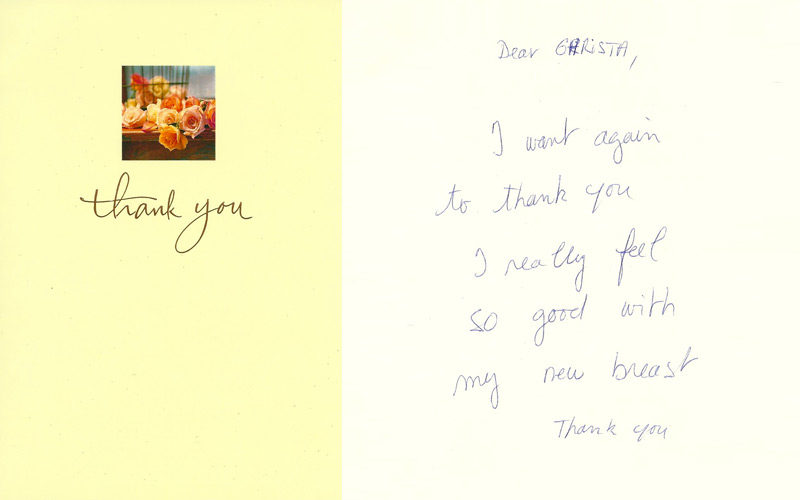 thank you
Dear CHRISTA,
I want again
to thank you
I really feel
so good with
my new breast
Thank you